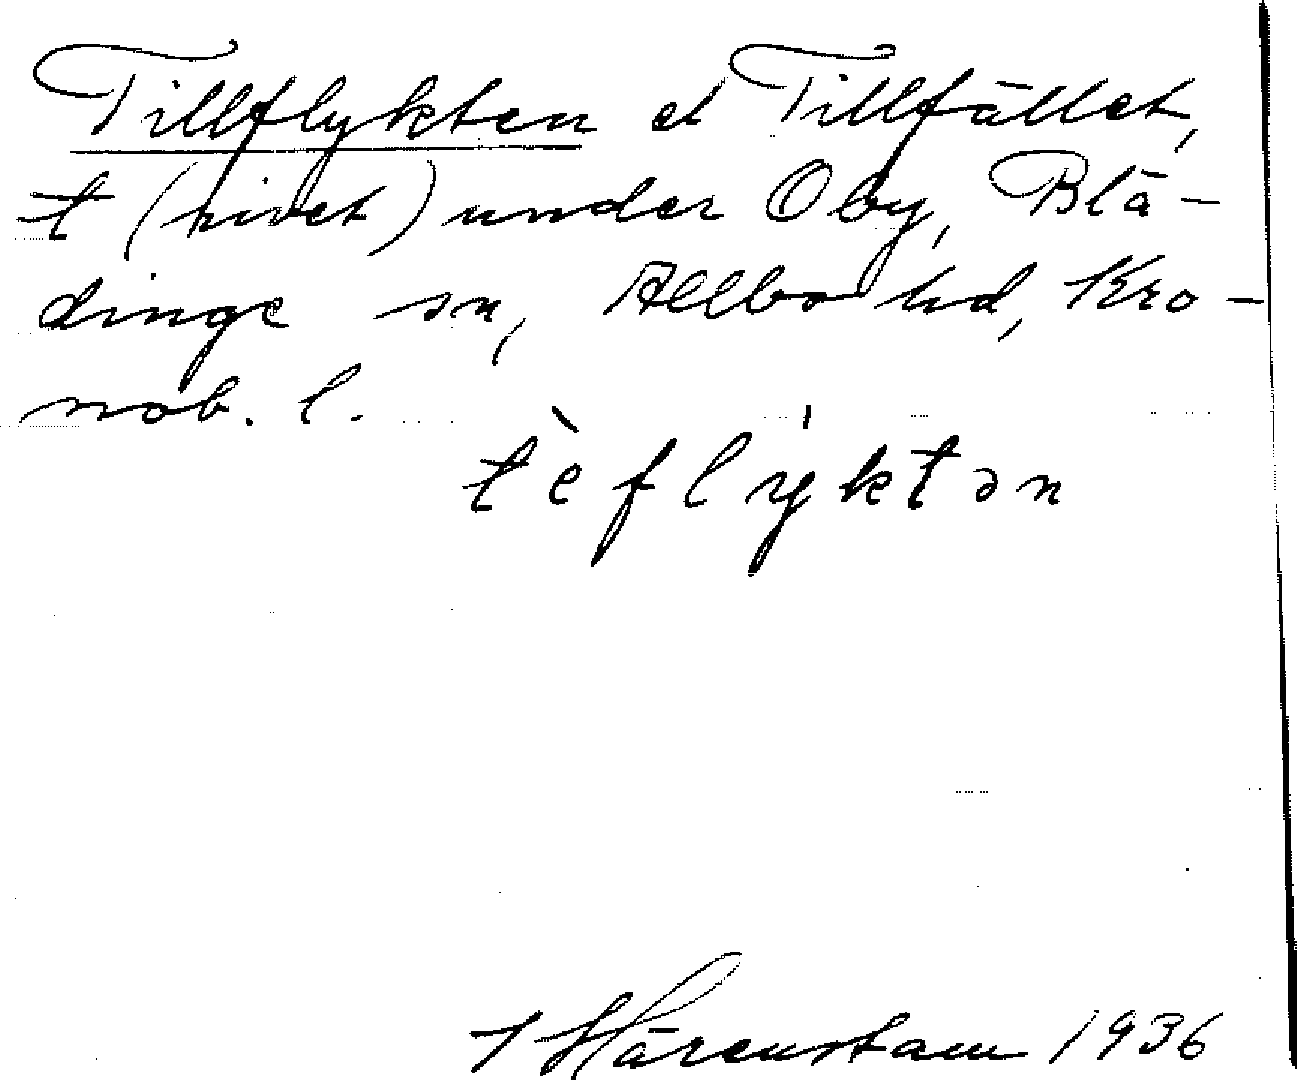 Tillflykten el Tillfället,
t (rivet) under Oby, Blä-
dinge sn, Allbo hd, Kro-
nob. l.
tèflýktən
J Härenstam 1936